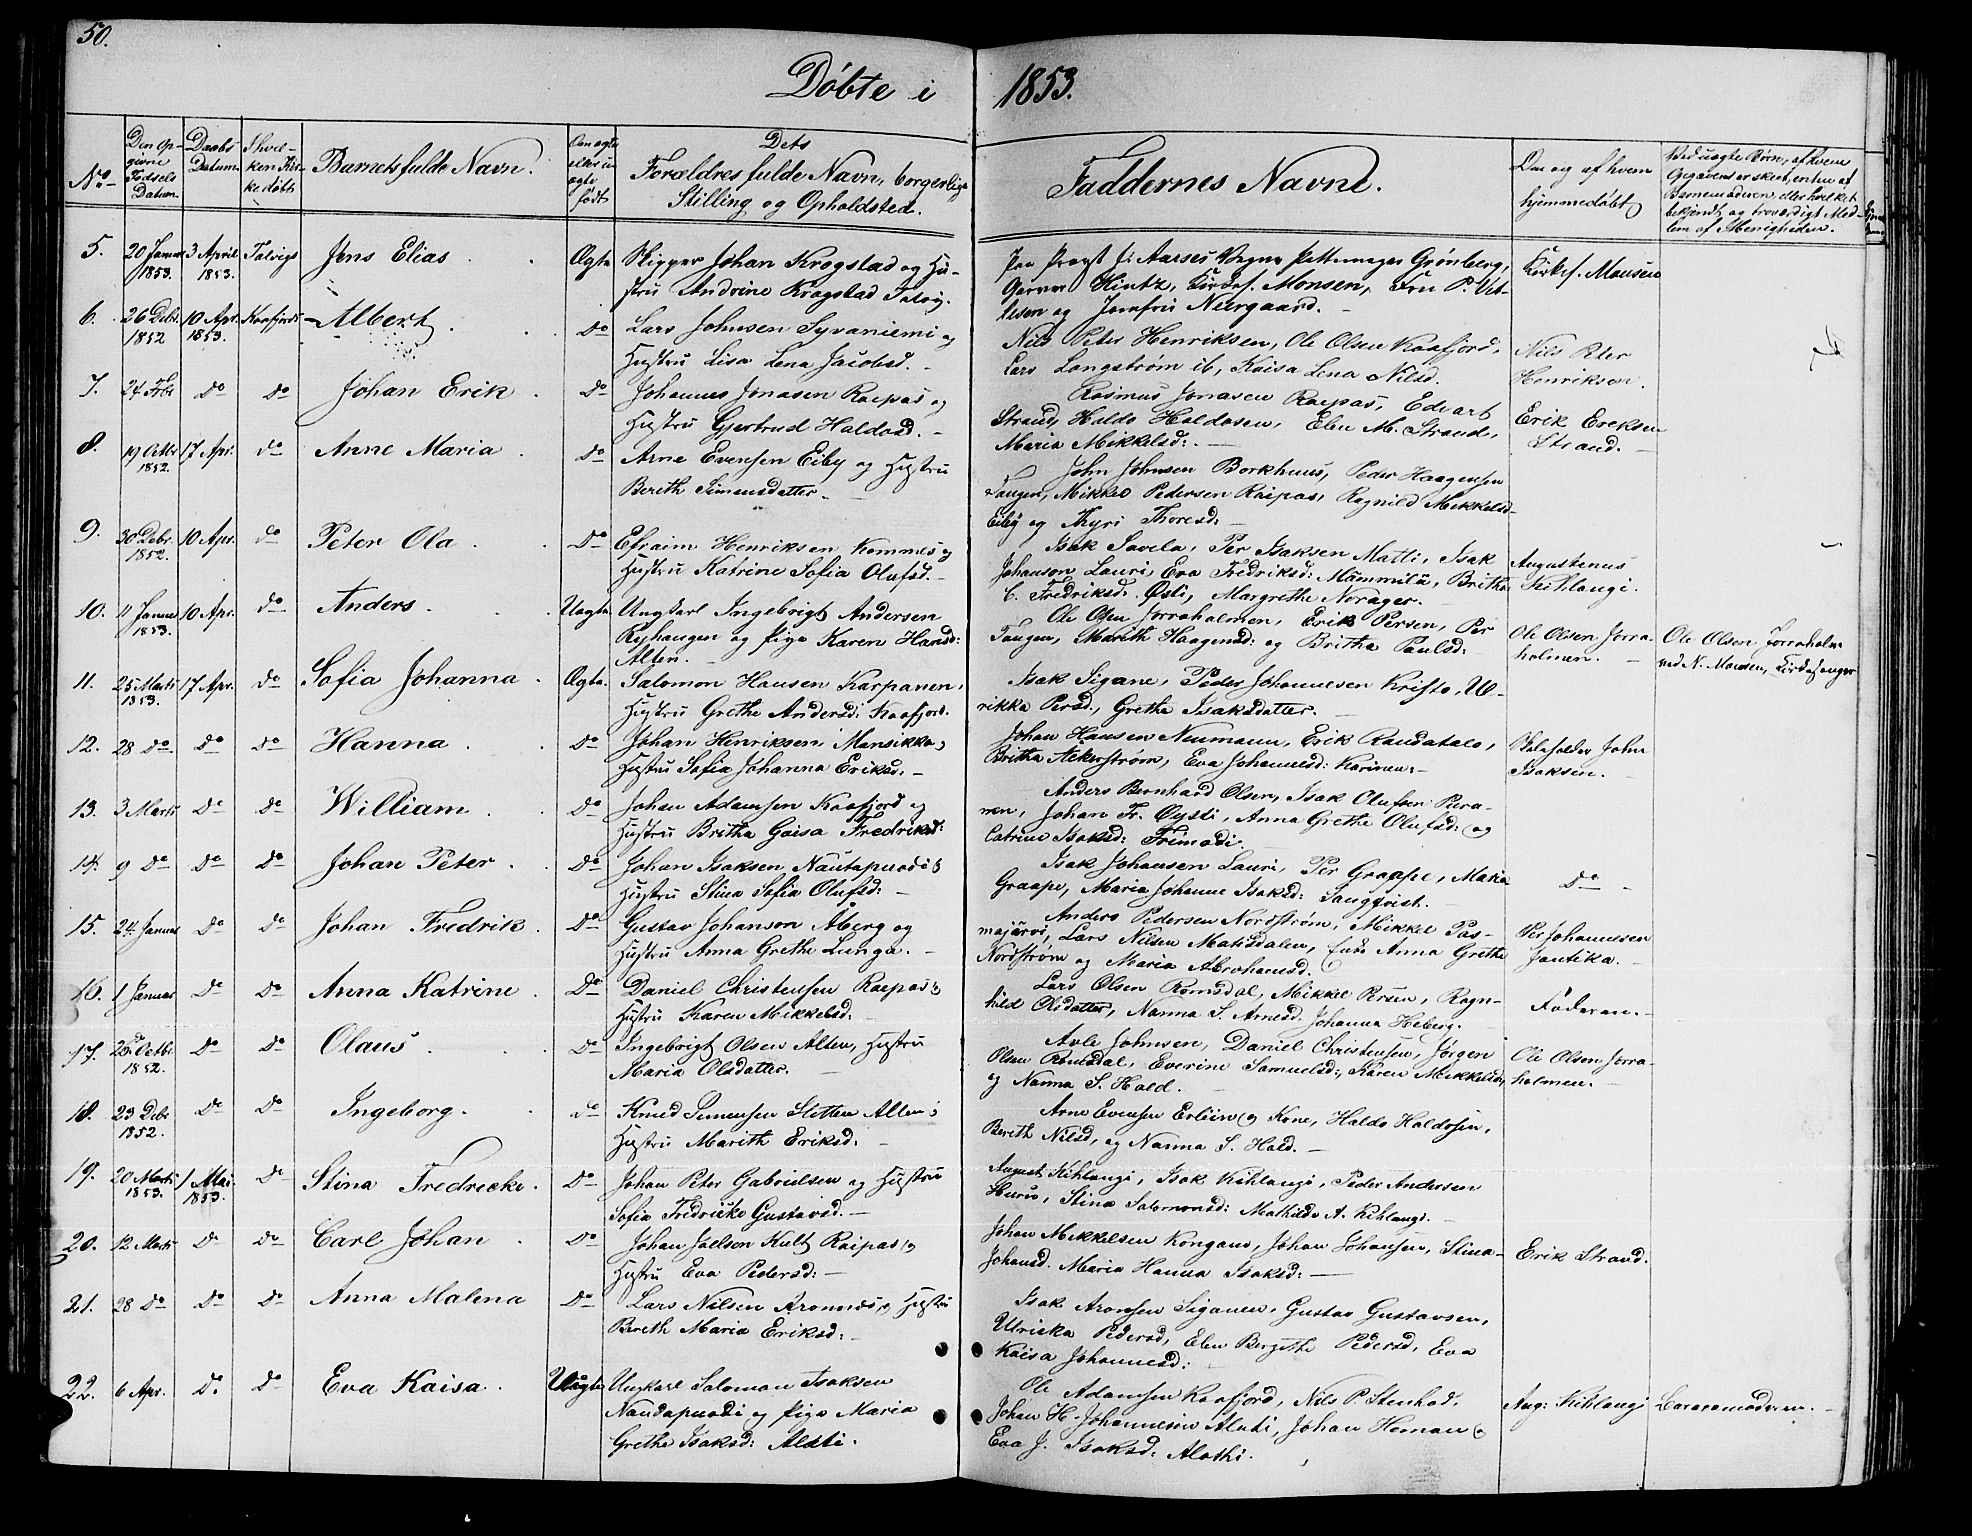 50.
Döbte i 1853.
No
Den Op-
givne
Fødsels
Datum.
Daabs
Datum.
I hvil-
ken Kir-
ke døbt.
Barnets fulde Navn.
Om ægte
eller u-
ægte
født
Dets
Forældres fulde Navn, borgerlige
Stilling og Opholdsted.
Faddernes Navne.
Om og af hvem
hjemmedøbt
Ved uægte Børn, af hvem
Opgaven er skeet, enten af
Barnemoderen eller hvilket
bekjendt og troværdigt Med-
lem af Menigheden.
5. 20 Januar 1853. 3 April 1853. Talvigs Jens Elias Ægte
Skipper Johan Krogstad og Hu-
stru Andrine Krogstad Talvig.
Aarses Grønberg,
Hintz, Monsen, Fru P. Vit-
lesen og Jomfru Neergaard.
Kirkes. Monsen
6. 26 Debr. 1852 10 Apr. 1853. Kaafjords Albert Do
Lars Johnsen Syvaniemi og
Hustru Lisa Lena Jacobsd.
Nils Peter Henriksen, Ole Olsen Kaafjord,
Lars Langstrøm ib, Kaisa Lena Nilsd.
Nils Peter
Henriksen.
7. 24 Do Do Johan Erik Do
Johannes Jonasen Raipas og
Hustru Gjertrud Haldosd.
Rasmus Jonasen Raipas, Edvart
Strand, Haldo Haldosen, Elen M. Strand,
Maria Mikkelsd:
Erik Ereksen
Strand.
8. 19 Octbr 1852. 17 Apr. do Anne Maria Do
Arne Evensen Eiby og Hustru
Berith Simensdatter.
John Johnsen Borkhuus, Peder Haagensen
Tangen, Mikkel Pedersen Raipas, Ragnild Mikkelsd
Eiby og Thyri Thoresd:
9. 30 Debr. 1852. 10 Apr. do Peter Ola Do
Efraim Henriksen Kommes og
Hustru Katrine Sofia Olufsd.
Isak Savela, Per Isaksen Matti, Isak
Johanson Lauri, Eva Fredriksd: Mämmilä, Britha
C. Fredriksd: Østi, Margrethe Norager.
Augustinus
Kihlangi.
10. 11 Januar 1853. 10 Apr. do Anders Uægte
Ungkarl Ingebrigt Andersen
Ryhaugen og Pige Karen Hansd:
Alten.
Ole Olsen Jorraholmen, Erik Persen, Per
Tangen, Marith Haagensd: og Britha Paulsd:
Ole Olsen Jorra-
holmen.
Ole Olsen Jorraholm
ved N. Monsen, Kirkesanger
11. 25 Marti 1853. 17 Apr. do Sofia Johanna Ægte.
Salomon Hansen Karpanen,
Hustru Grethe Andersd: Kaafjord.
Isak Sigane, Peder Johannesen Kristo, Ul-
rikka Persd., Grethe Isaksdatter.
12. 28 do Do Do Hanna Do
Johan Henriksen Mansikka og
Hustru Sofia Johanna Eriksd:
Johan Hansen Neumann, Erik Raudatalo,
Britha Akkerstrøm, Eva Johannesd: Karinen.
John
Isaksen.
13. 3 Marti Do Do William Do
Johan Adamsen Kaafjord og
Hustru Britha Gaisa Fredriksd:
Anders Bernhard Olsen, Isak Olufsen Pera-
nen, Johan Fr. Øysti, Anna Grethe Olufsd: og
Catrine Isaksd: Frimodi.
14. 9 Do Do Do Johan Peter Do
Johan Isaksen Nautapuodi og
Hustru Stina Sofia Olufsd:
Isak Johansen Lauri, Per Graape, Maria
Graape, Maria Johanne Isaksd: Sangqvist.
Do
15. 24 Januar Do Do Johan Fredrik Do
Gustav Johanson Åberg og
Hustru Anna Grethe Lunga.
Anders Pedersen Nordstrøm, Mikkel Pas-
majärvi, Lars Nilsen Matisdalen, Anna Grethe
Nordstrøm og Maria Abrahamsd.
Per Johannessen
Jantika.
16. 1 Januar Do Do Anna Katrine Do
Daniel Christensen Raipas og
Hustru Karen Mikkelsd:
Lars Olsen Romsdal, Mikkel Persen, Ragn-
hild Olsdatter, Nanna S. Arnesd. Johanna Heberg.
Faderen.
17. 25 Octbr. 1852. Do Do Olaus Do
Ingebrigt Olsen Alten, Hustru
Maria Olsdatter.
Avle Johnsen, Daniel Christensen, Jørgen
Olsen Romsdal, Everine Samuelsd:, Karen Mikkelsd,
og Nanna S. Hald.
Ole Olsen Jorra-
holmen.
18. 23 Debr 1852. Do Do Ingeborg. do
Knud Simensen Sletten Alten og
Hustru Marith Eriksd:
Arne Evensen og Kone, Haldo Haldosen,
Berith Nilsd, og Nanna S. Hald.
19. 20 Marti 1853. 1 Mai 1853. Do Stina Fredricke. Do
Johan Peter Gabrielsen og Hustru
Sofia Fredricke Gustavsd.
August Kihlangi, Isak Kihlangi, Peder Andersen
Huru, Stina Salomonsd: Mathilde A. Kihlangi.
20. 12 Marti Do Do Carl Johan Do
Johan Joelsen Kult Raipas og
Hustru Eva Pedersd:
Johan Mikkelsen Kongäns, Johan Johansen, Stina
Johansd. Maria Hanna Isaksd:
Erik Strand.
21. 28 Do Do Do Anna Malena Do
Lars Nilsen Kronnes, Hustru
Bereth Maria Eriksd:
Isak Aronsen Siganen, Gustav Gustavsen,
Ulricka Pedersd, Elen Bergithe Pedersd, Eva
Kaisa Johannesd:
22. 6 Apr. Do Do Eva Kaisa. Uægte
Ungkarl Salomon Isaksen
Naudapuodi og Pige Maria
Grethe Isaksd: Alatti.
Ole Adamsen Kaafjord, Nils P. Stenhod,
Johan H. Johannesen Alati, Johan Heman og
Eva J. Isaksd: Alathi.
Aug: Kihlangi
Barnemoderen.